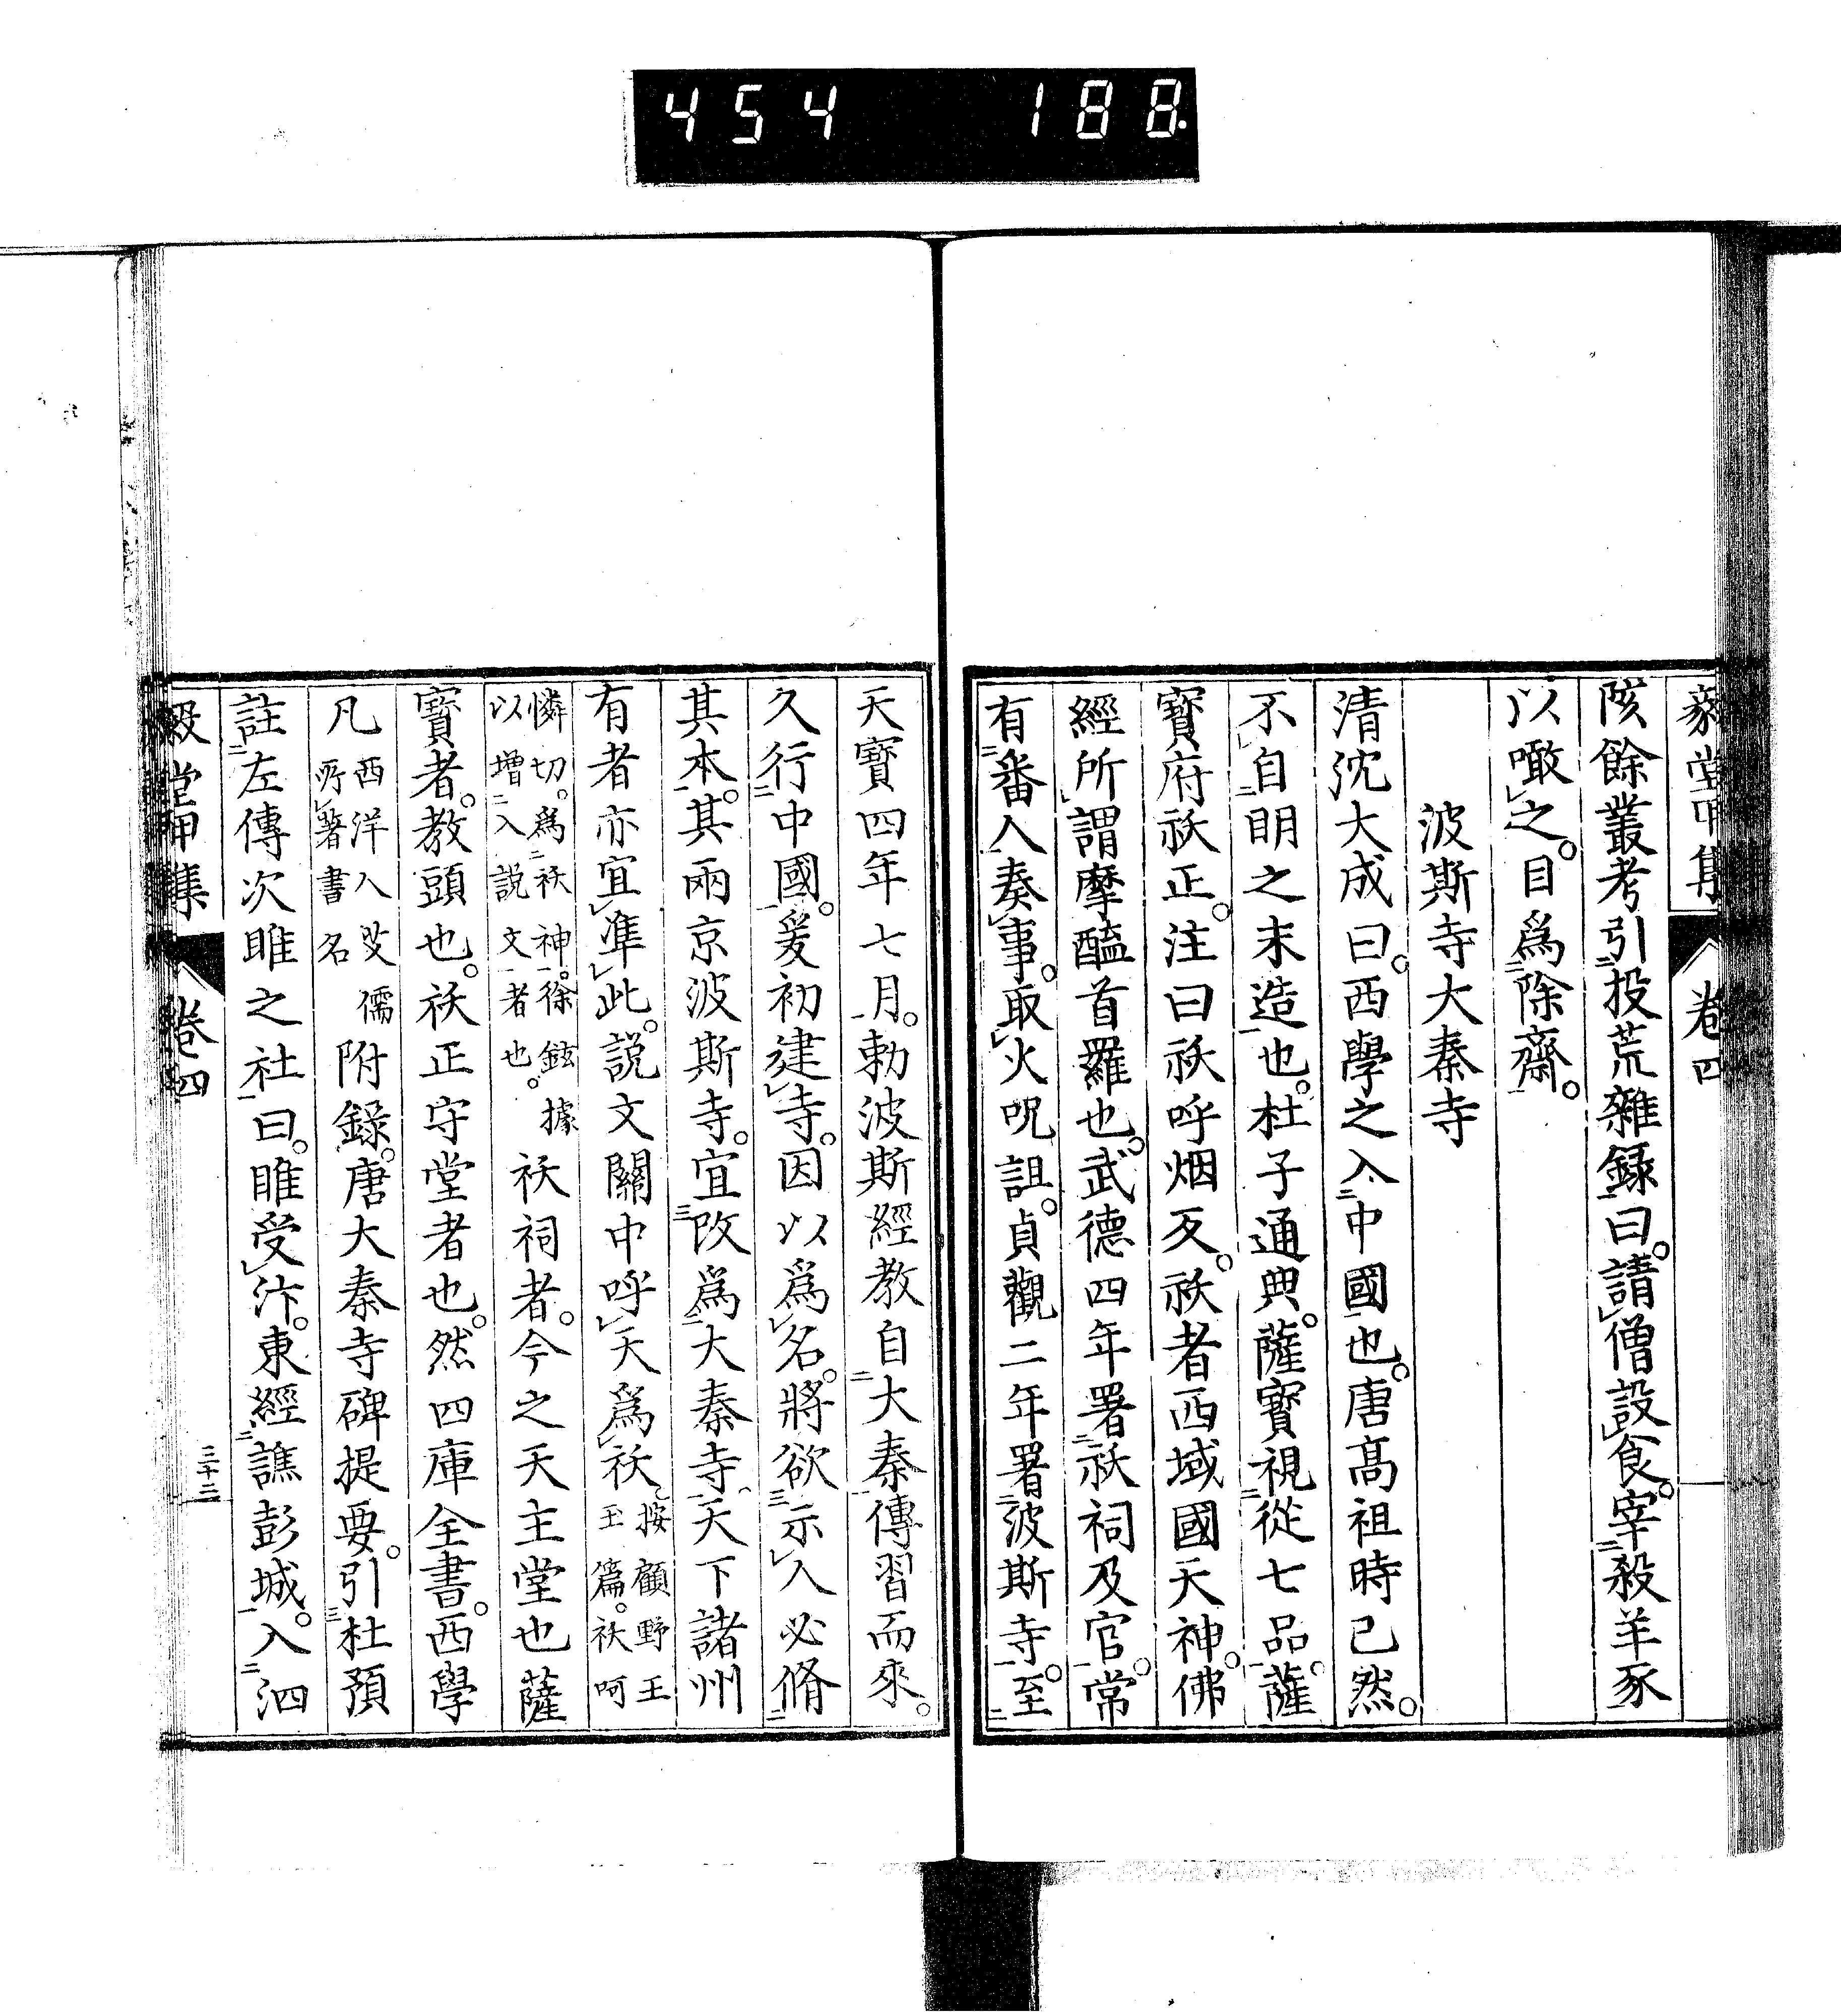 454 188
毅堂甲集 卷四
陔餘叢考引投荒雜録曰。請僧設食。宰殺羊豕
以噉之。目爲除齋。
波斯寺大秦寺
清沈大成曰。西學之入中國也。唐髙祖時已然。
不自明之末造也。杜子通典。薩寳視從七品。薩
寳府祅正。注曰祅呼烟反。祅者西域國天神。佛
經所謂摩醯首羅也。武德四年署祅祠及官。常
有番人奏事。取火呪詛。貞觀二年署波斯寺。至
天寳四年七月。勅波斯經教自大秦傳習而來。
久行中國。爰初建寺。因以爲名。將欲示人必脩
其本。其兩京波斯寺。宜改爲大秦寺。天下諸州
有者亦宜準此。説文關中呼天爲祅按顧野王玉篇。祅呵
憐切。爲祅神。徐鉉據以增入説文者也。祅祠者。今之天主堂也薩
寳者。教頭也。祅正守堂者也。然四庫全書。西學
凡西洋人艾儒所著書名附錄。唐大秦寺碑提要。引杜預
註左傳次睢之社曰。睢受汴。東經譙彭城。入泗
毅堂甲集 卷四 三十二